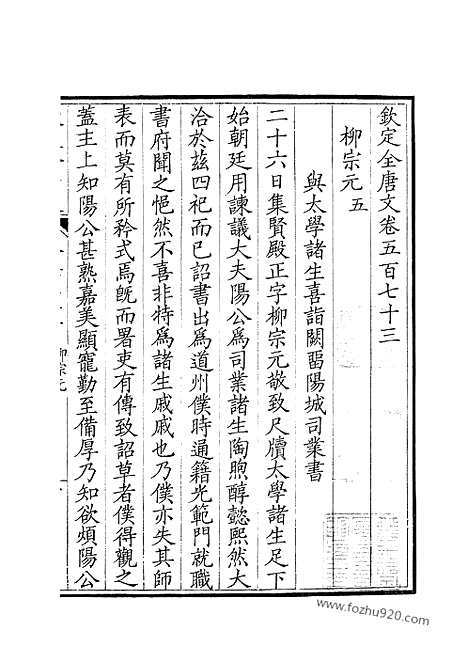 欽定全唐文卷五百七十三
柳宗元 五
與太學諸生喜詣闕畱陽城司業書
二十六日集賢殿正字柳宗元敬致尺牘太學諸生足下
始朝廷用諫議大夫陽公爲司業諸生陶煦醇懿熙然大
洽於茲四祀而已詔書出爲道州僕時通籍光範門就職
書府聞之悒然不喜非特爲諸生戚戚也乃僕亦失其師
表而莫有所矜式焉旣而署吏有傳致詔草者僕得觀之
蓋主上知陽公甚熟嘉美顯寵勤至備厚乃知欲煩陽公
柳宗元
www.fozhu920.com